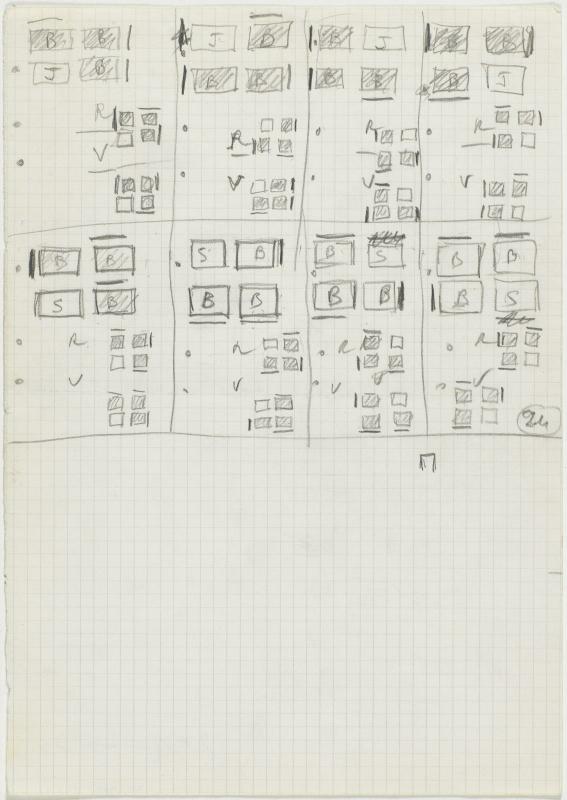 B B
J B
R
V
J B
B B
R
V
B J
B B
R
V
B B
B J
R
V
B B
S B
R
V
S B
B B
R
V
B S
B B
R R
V V
B B
B S
R
V
24